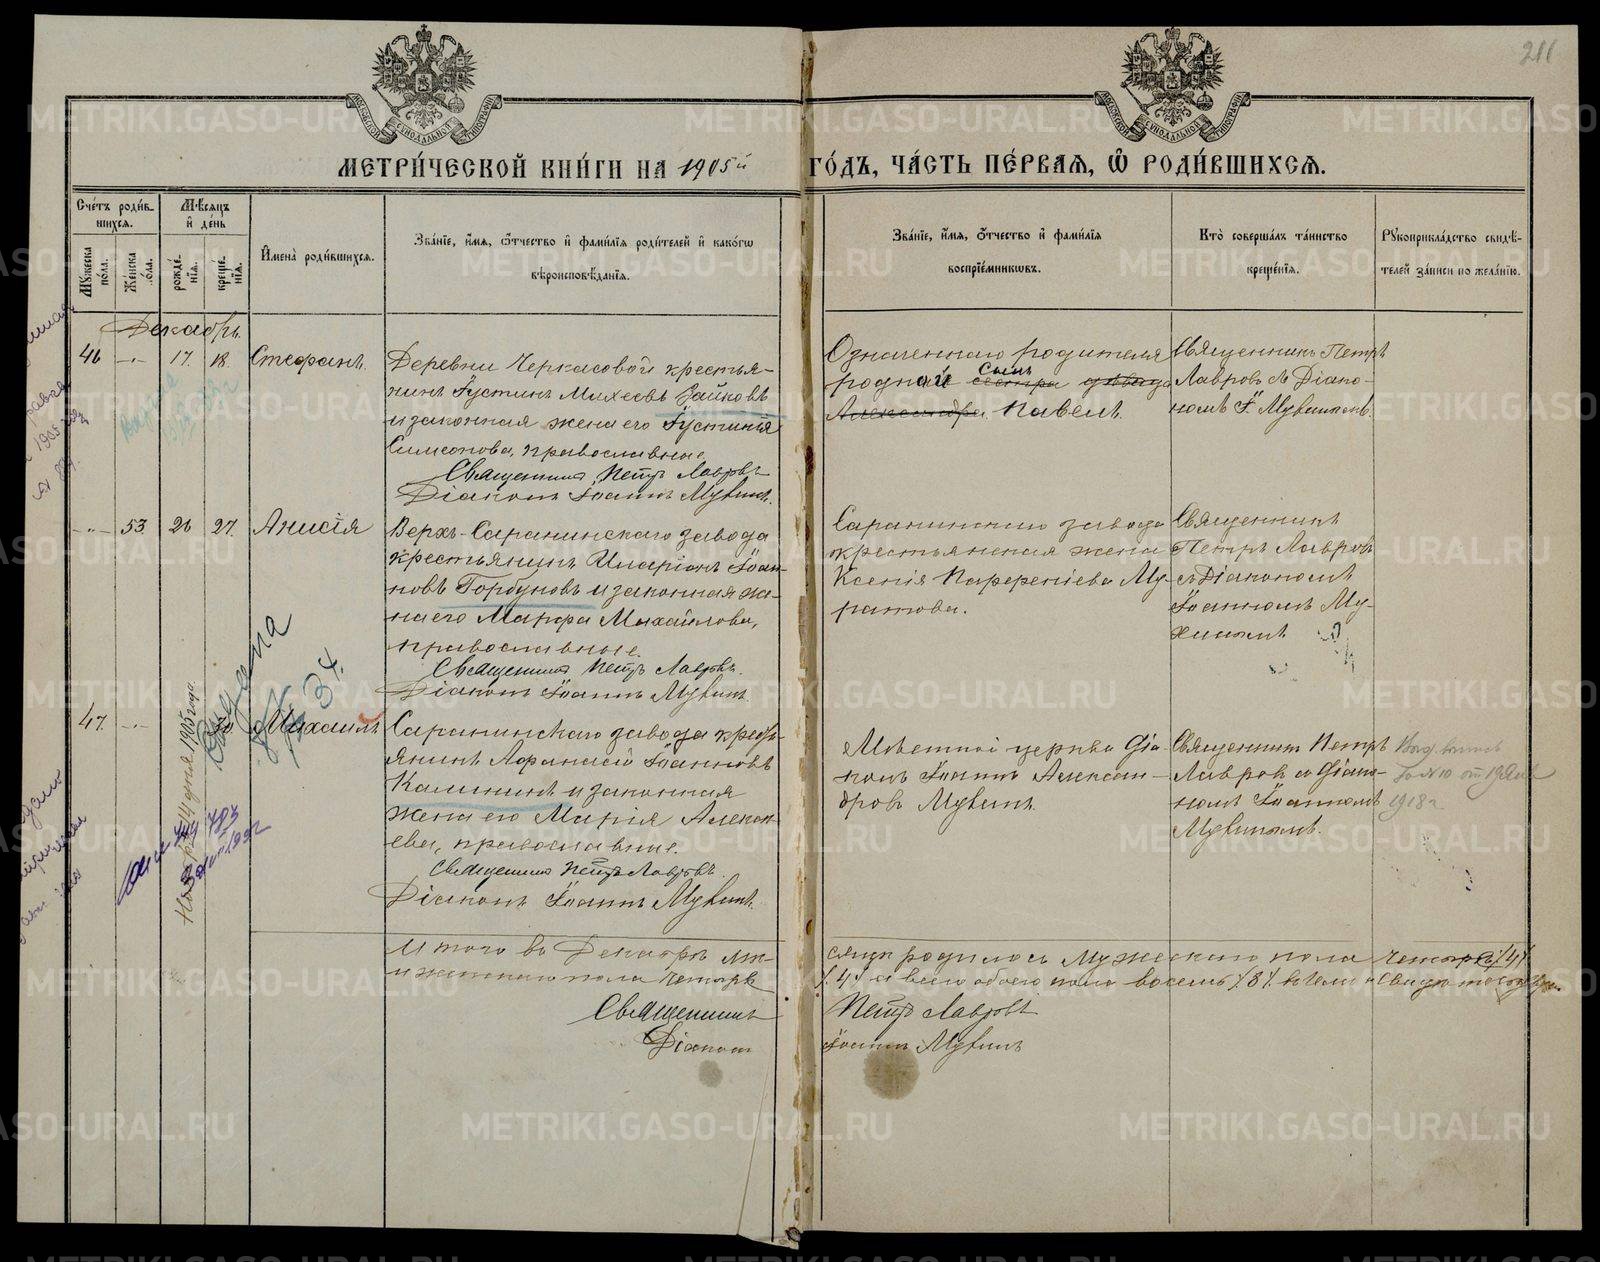 211
МОСКОВСКОЙ СѴНОДАЛЬНОЙ ТИПОГРАФІИ
МОСКОВСКОЙ СѴНОДАЛЬНОЙ ТИПОГРАФІИ
МЕТРИ́ЧЕСКОЙ КНИ́ГИ НА 1905й ГО́ДЪ, ЧА́СТЬ ПЕ́РВАЯ, Ѽ РОДИ́ВШИХСЯ.
Сче́тъ роди́в-
шихся.
Мѣсяцъ
и де́нь
Мужеска по́ла.
Же́нска по́ла.
рожде́-нія.
креще́-нія.
Имена̀ роди́вшихся.
Зва́ніе, и́мя, ѻ́тчество и фами́лія роди́телей и како́гѡ
вѣроисповѣ́данія.
Зва́ніе, и́мя, ѻ́тчество и фами́лія
воспріе́мникѡвъ.
Кто̀ соверша́лъ та́инство
креще́нія.
Рукоприкла́дство свидѣ́-
телей за́писи по жела́нію.
Декабрь.
46 -„- 17. 18. Стефанъ.
Деревни Черкасовой крестья-
нинъ Іустинъ Михеевъ Зайковъ
и законная жена его Іустинія
Симеонова, православные.
Священникъ Петръ Лавровъ
Діаконъ Іоаннъ Мухинъ.
Означеннаго родителя
родной сынъ сестра дѣвица
Александра Павелъ.
Священникъ Петръ
Лавровъ съ Діако-
номъ І. Мухинымъ.
-„- 53. 26 27. Анисія
Верхъ-Саранинскаго завода
крестьянинъ Иларіонъ Іоан-
новъ Горбуновъ и законная же-
на его Марфа Михайлова,
православные.
Священникъ Петръ Лавровъ.
Діаконъ Іоаннъ Мухинъ.
Саранинскаго завода
крестьянская жена
Ксенія Парфеніева Му-
ратова.
Священникъ
Петръ Лавровъ
съ Діакономъ
Іоанномъ Му-
хинымъ
Выдана
№ 34.
47. -„- Ноября 14 дня 1905 года. Михаилъ
Саранинскаго завода кресть-
янинъ Афанасій Іоанновъ
Калининъ и законная
жена его Марія Алексе-
ева, православные.
Священникъ Петръ Лавровъ.
Діаконъ Іоаннъ Мухинъ.
Мѣстной церкви діа-
конъ Іоаннъ Алексан-
дровъ Мухинъ.
Священникъ Петръ
Лавровъ съ діако-
номъ Іоанномъ
Мухинымъ.
за № 10 от 19 Янв
1918 г.
Итого въ Декабрѣ мѣ-
сяцѣ родилось мужескаго пола четыре /4/
и женскаго пола четыре
/4/ а всего обоего пола восемь /8/
Священникъ Петръ Лавровъ
Діаконъ Іоаннъ Мухинъ
METRIKI.GASO-URAL.RU